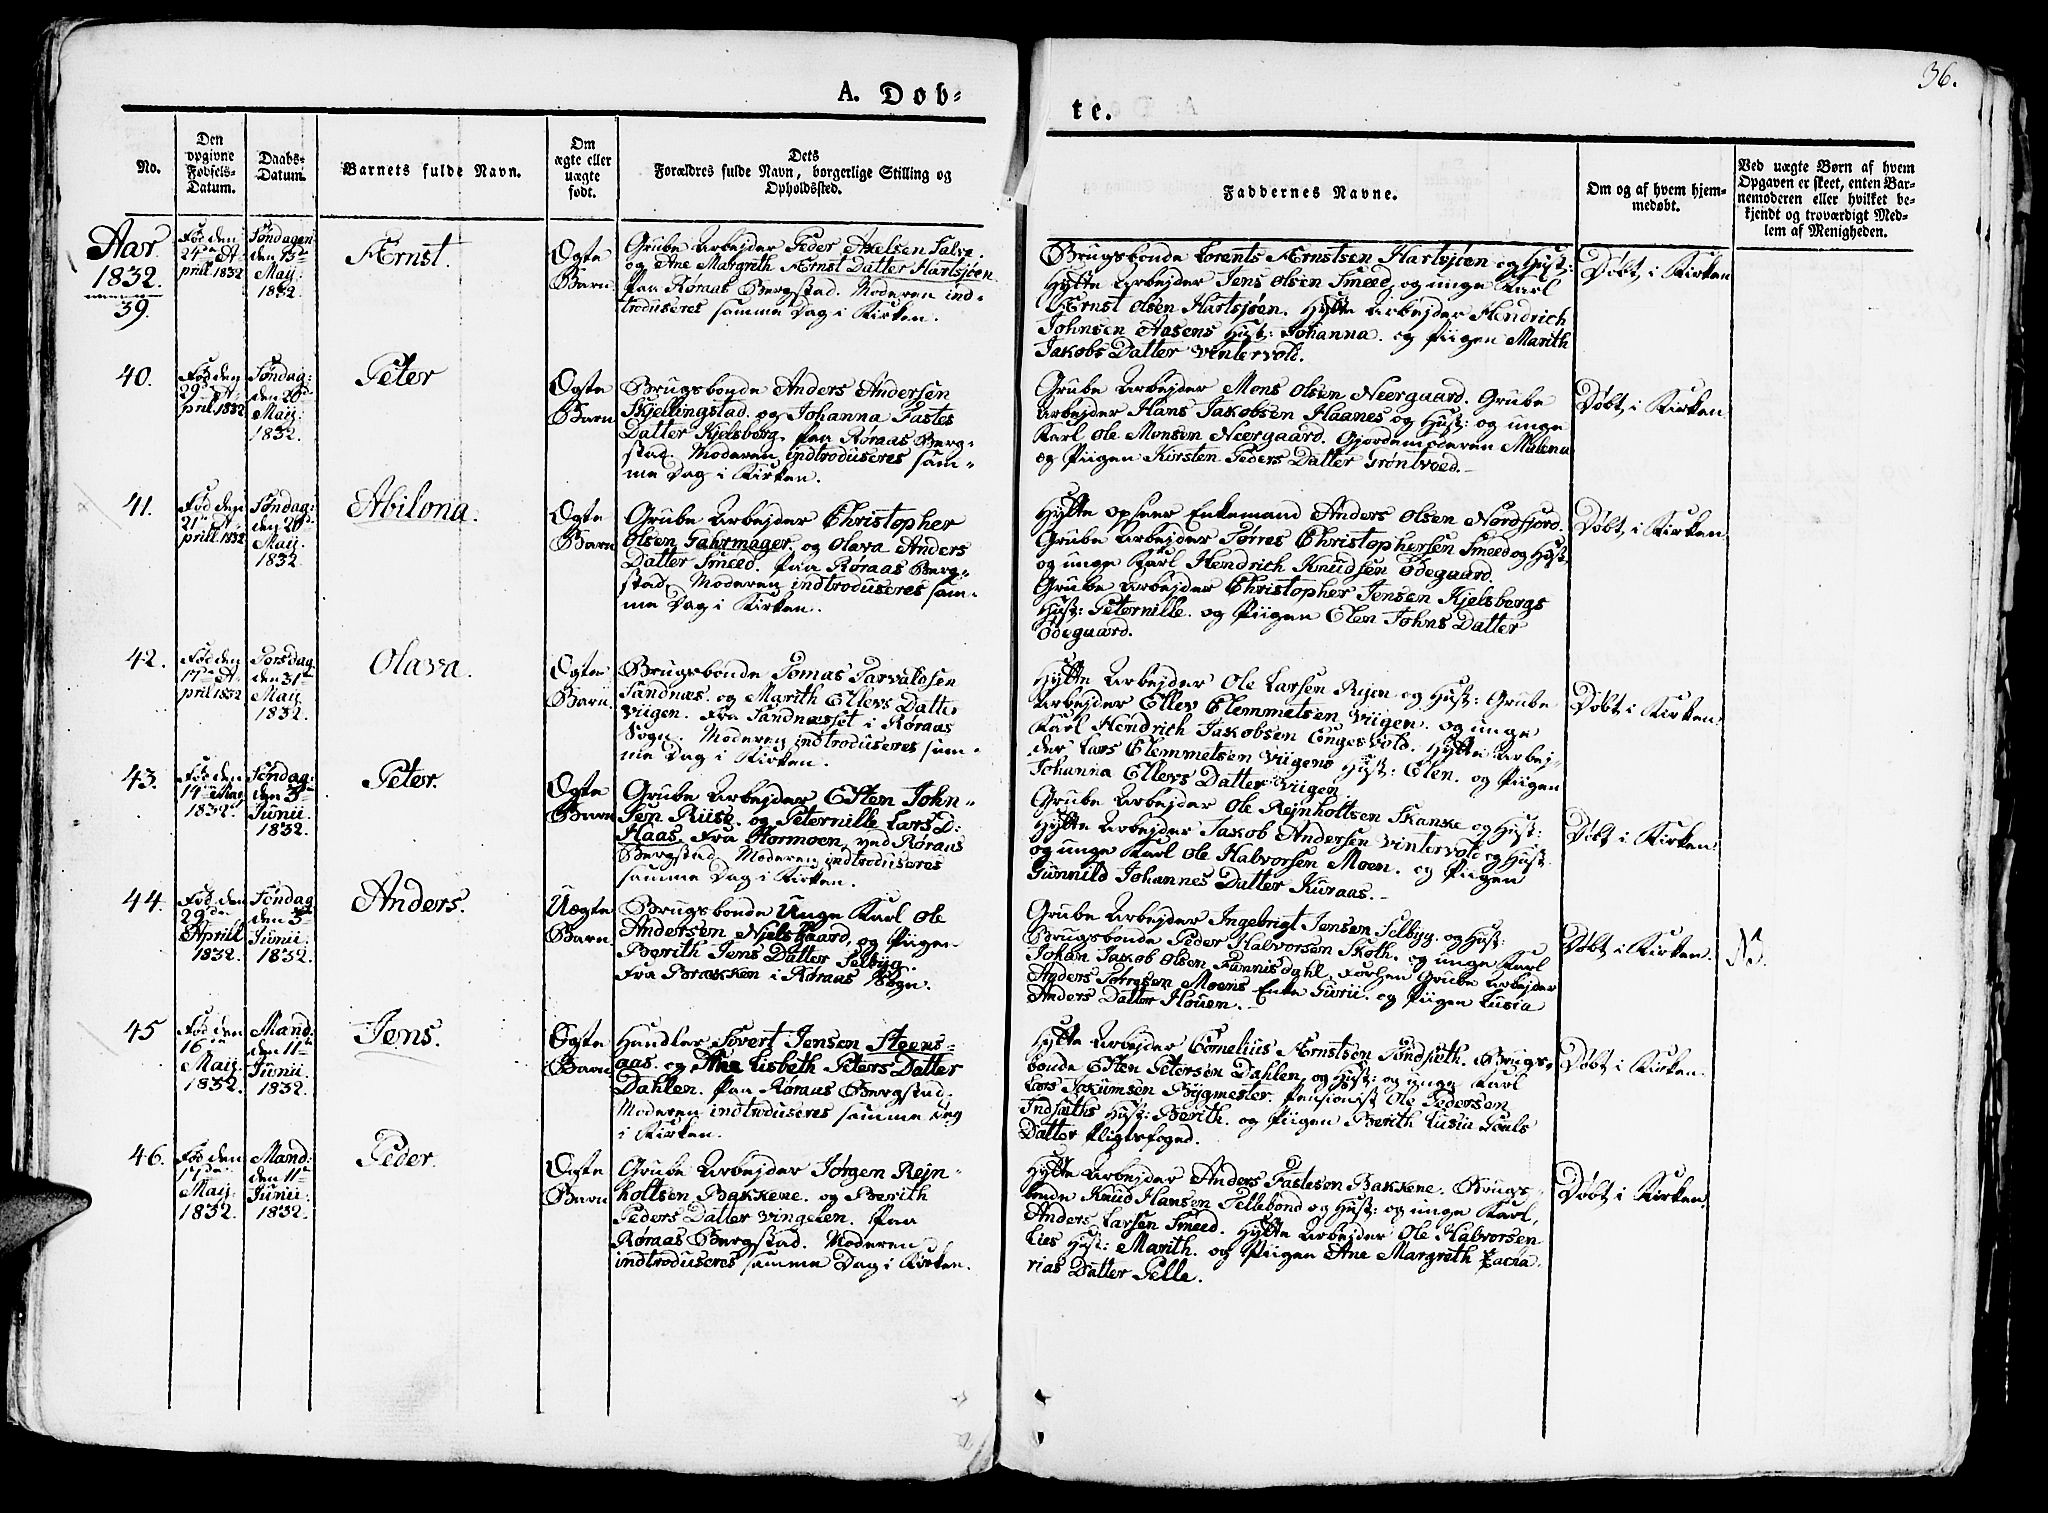 36.
A. Døb-
te.
No.
Den opgivne Fødsels-Datum.
Daabs-Datum.
Barnets fulde Navn.
Om ægte eller uægte født.
Dets Forældres fulde Navn, borgerlige Stilling og Opholdssted.
Faddernes Navne.
Om og af hvem hjem-
medøbt.
Ved uægte Børn af hvem
Opgaven er skeet, enten Bar-
nemoderen eller hvilket be-
kjendt og troværdigt Med-
lem af Menigheden.
Aar
1832.
39.
Fød den
24de A-
pril 1832
Søndagen
den 13de
Maij
1832.
Ærnst.
Ægte
Barn
Grube Arbejder Peder Axelsen Salve.
og Ane Margrith Ærnst Datter Hartsjøen
paa Røraas Bergstad. Moderen ind-
troduseres samme Dag i Kirken.
Brugsbonde Lorents Ærnstsen Hartsjøen og Hust:
Hytte Arbejder Jens Olsen Smeed, og unge Karl
Ærnst Olsen Hartsjøen. Hytte Arbejder Hendrich
Johnsen Aasens Hust: Johanna. og Piigen Marith
Jakobs Datter Vintervold.
Døbt i Kirken
40.
Fød den
29de A-
pril 1832
Søndag:
den 20de
Maij
1832.
Peter
Ægte
Barn
Brugsbonde Anders Andersen
Skjellingstad. og Johanna Fastes
Datter Kjelsberg. paa Røraas Berg-
stad. Moderen indtroduseres sam-
me Dag i Kirken.
Grube Arbejder Mons Olsen Neergaard. Grube
Arbejder Hans Jakobsen Haanes og Hust: og unge
Karl Ole Monsen Neergaard. Gjordemoderen Malena
og Piigen Kirsten Peders Datter Grøntvoed.
Døbt i Kirken
41.
Fød den
21de A-
prill 1832
Søndag:
den 20de
Maij
1832.
Abilona.
Ægte
Barn
Grube Arbejder Christopher
Olsen Gahrmager. og Olava Anders
Datter Smeed. paa Røraas Berg-
stad. Moderen indtroduseres sam-
me Dag i Kirken.
Hytte Opseer Enkemand Anders Olsen Nordfjord.
Grube Arbejder Tørres Christophersen Smeed og Hust
og unge Karl Hendrich Knudsen Ødegaard.
Grube Arbejder Christopher Jensen Kjelsbergs
Hust: Peternille. og Piigen Elen Johns Datter
Ødegaard.
Døbt i Kirken
42.
Fød den
17de A-
pril 1832
Torsdag
den 31te
Maij
1832.
Olava.
Ægte
Barn.
Brugsbonde Tomas Tarvaldsen
Sandnæs. og Marith Ellevs Datter
Viigen. fra Sandnæsset i Røraas
Sogn. Moderen indtroduseres sam-
me Dag i Kirken.
Hytte Arbejder Ole Larsen Rijen og Hust: Grube
Arbejder Ellev Clemmetsen Viigen. og unge
Karl Hendrich Jakobsen Engesvold. Hytte Arbej-
der Lars Clemmetsen Viigens Hust: Elen. og Piigen
Johanna Ellevs Datter Viigen
Døbt i Kirken.
43.
Fød den
14de Maij
1832.
Søndag:
den 3de
Junii
1832.
Peter.
Ægte
Barn
Grube Arbejder Esten John-
sen Ruse. og Peternille Lars D:
Haas. fra Stormoen, ved Røraas
Bergstad. Moderen indtroduseres
samme Dag i Kirken.
Grube Arbejder Ole Rejnholtsen Skanke og Hust:
Hytte Arbejder Jakob Andersen Vintervold og Hust
og unge Karl Ole Halvorsen Moen. og Piigen
Gunnild Johannes Datter Kuraas.
Døbt i Kirken.
44.
Fød den
29de
Aprill
1832.
Søndag
den 3de
Junii
1832.
Anders.
Uægte
Barn.
Brugsbonde Unge Karl Ole
Andersen Nielsgaard, og Piigen
Berith Jens Datter Selbyg.
fra Bræekken i Røraas Sogn.
Grube Arbejder Ingebrigt Jensen Selbyg. og Hust:
Brugsbonde Peder Halvorsen Skoth. og unge Karl
Johan Jakob Olsen Funnisdahl, Forhen Grube Arbejder
Anders Tørresen Moens Enke Gurii. og Piigen Lusia
Anders Datter Houen.
Døbt i Kirken.
N3.
45
Fød den
16de
Maij
1832.
Mand:
den 11te
Junii
1832.
Jens.
Ægte
Barn
Handler Sivert Jensen Steens-
aas. og Ane Lisbeth Peters Datter
Dahlen. paa Røraas Bergstad.
Moderen indtroduseres samme Dag
i Kirken.
Hytte Arbejder Cornelius Ærnstsen Sundsæth. Brugs-
bonde Esten Petersen Dahlen, og Hust: og unge Karl
Lars Jakumsen Bygmester. Pensionist Ole Pedersen
Indsæths Hust: Berith. og Piigen Berith Lusia Poels
Datter Pligtsfoged.
Døbt i Kirken.
46.
Fød den
17de
Maij
1832.
Mand:
den 11te
Junii
1832.
Peder.
Ægte
Barn
Grube Arbejder Jørgen Rejn-
holtsen Bakkene. og Berith
Peders Datter Vingelen. paa
Røraas Bergstad. Moderen
indtroduseres samme Dag i Kirken.
Hytte Arbejder Anders Fastesen Bakkene. Brugs-
bonde Knud Hansen Tellebond og Hust: og unge Karl,
Anders Larsen Smeed. Hytte Arbejder Ole Halvorsen
Lies Hust: Marith. og Piigen Ane Margreth Zacha-
rias Datter Pelle.
Døbt i Kirken.